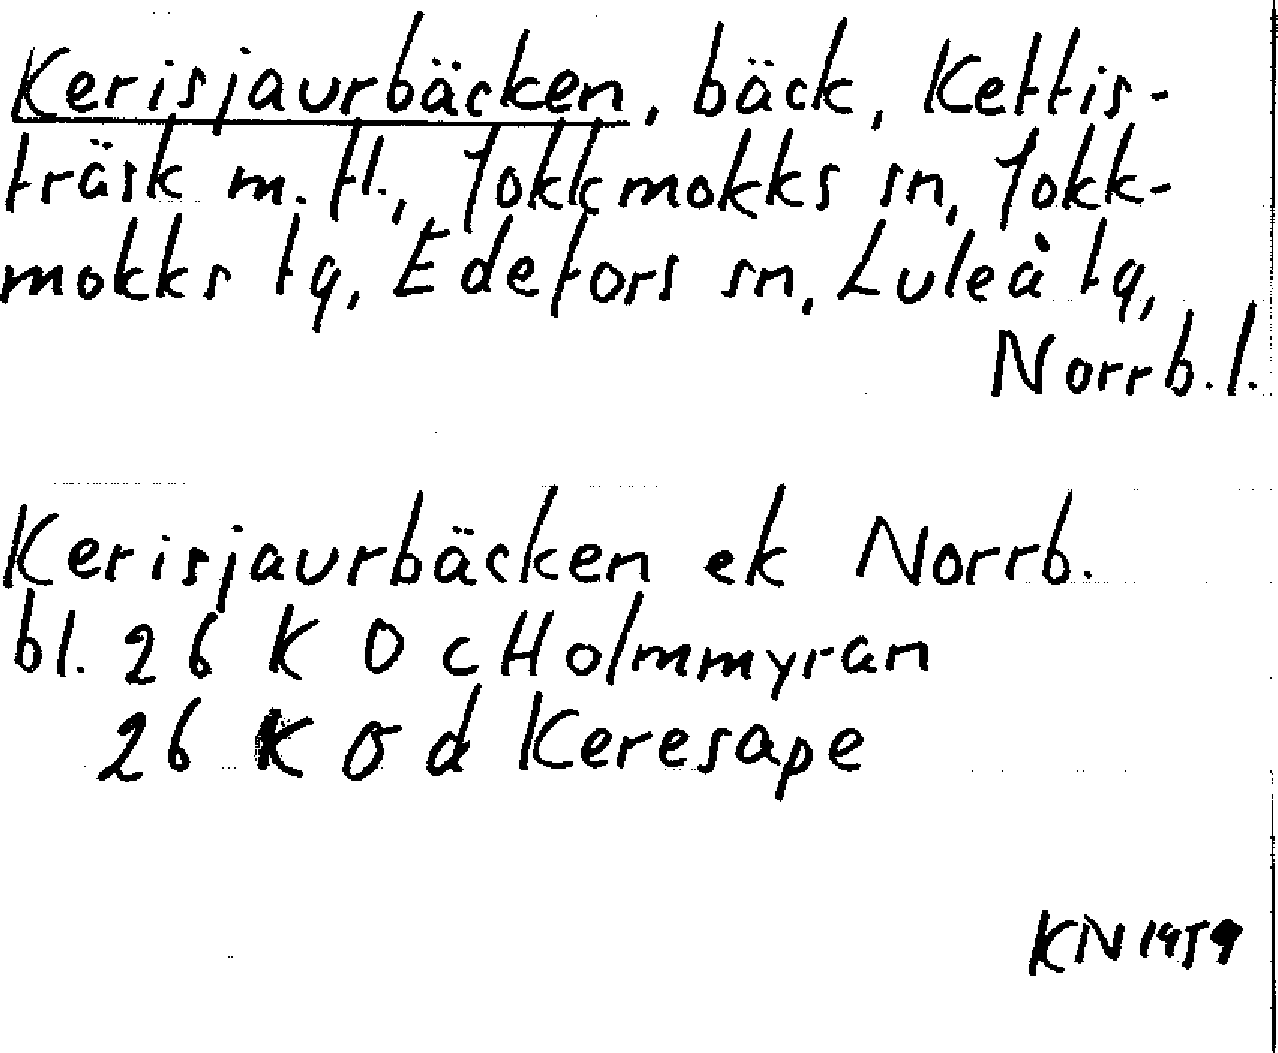 Kerisjaurbäcken, bäck, Kettis-
träsk m. fl., Jokkmokks sn, Jokk-
mokks tg, Edefors sn, Luleå tg,
Norrb. l.
Kerisjaurbäcken ek Norrb.
bl. 26 K 0 c Holmmyran
26 K 0 d Keresape
KN 1959